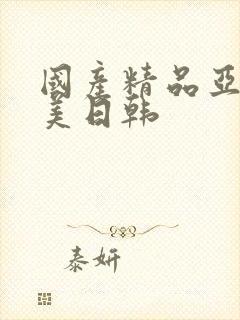 國產精品亞
美日韩
泰妍